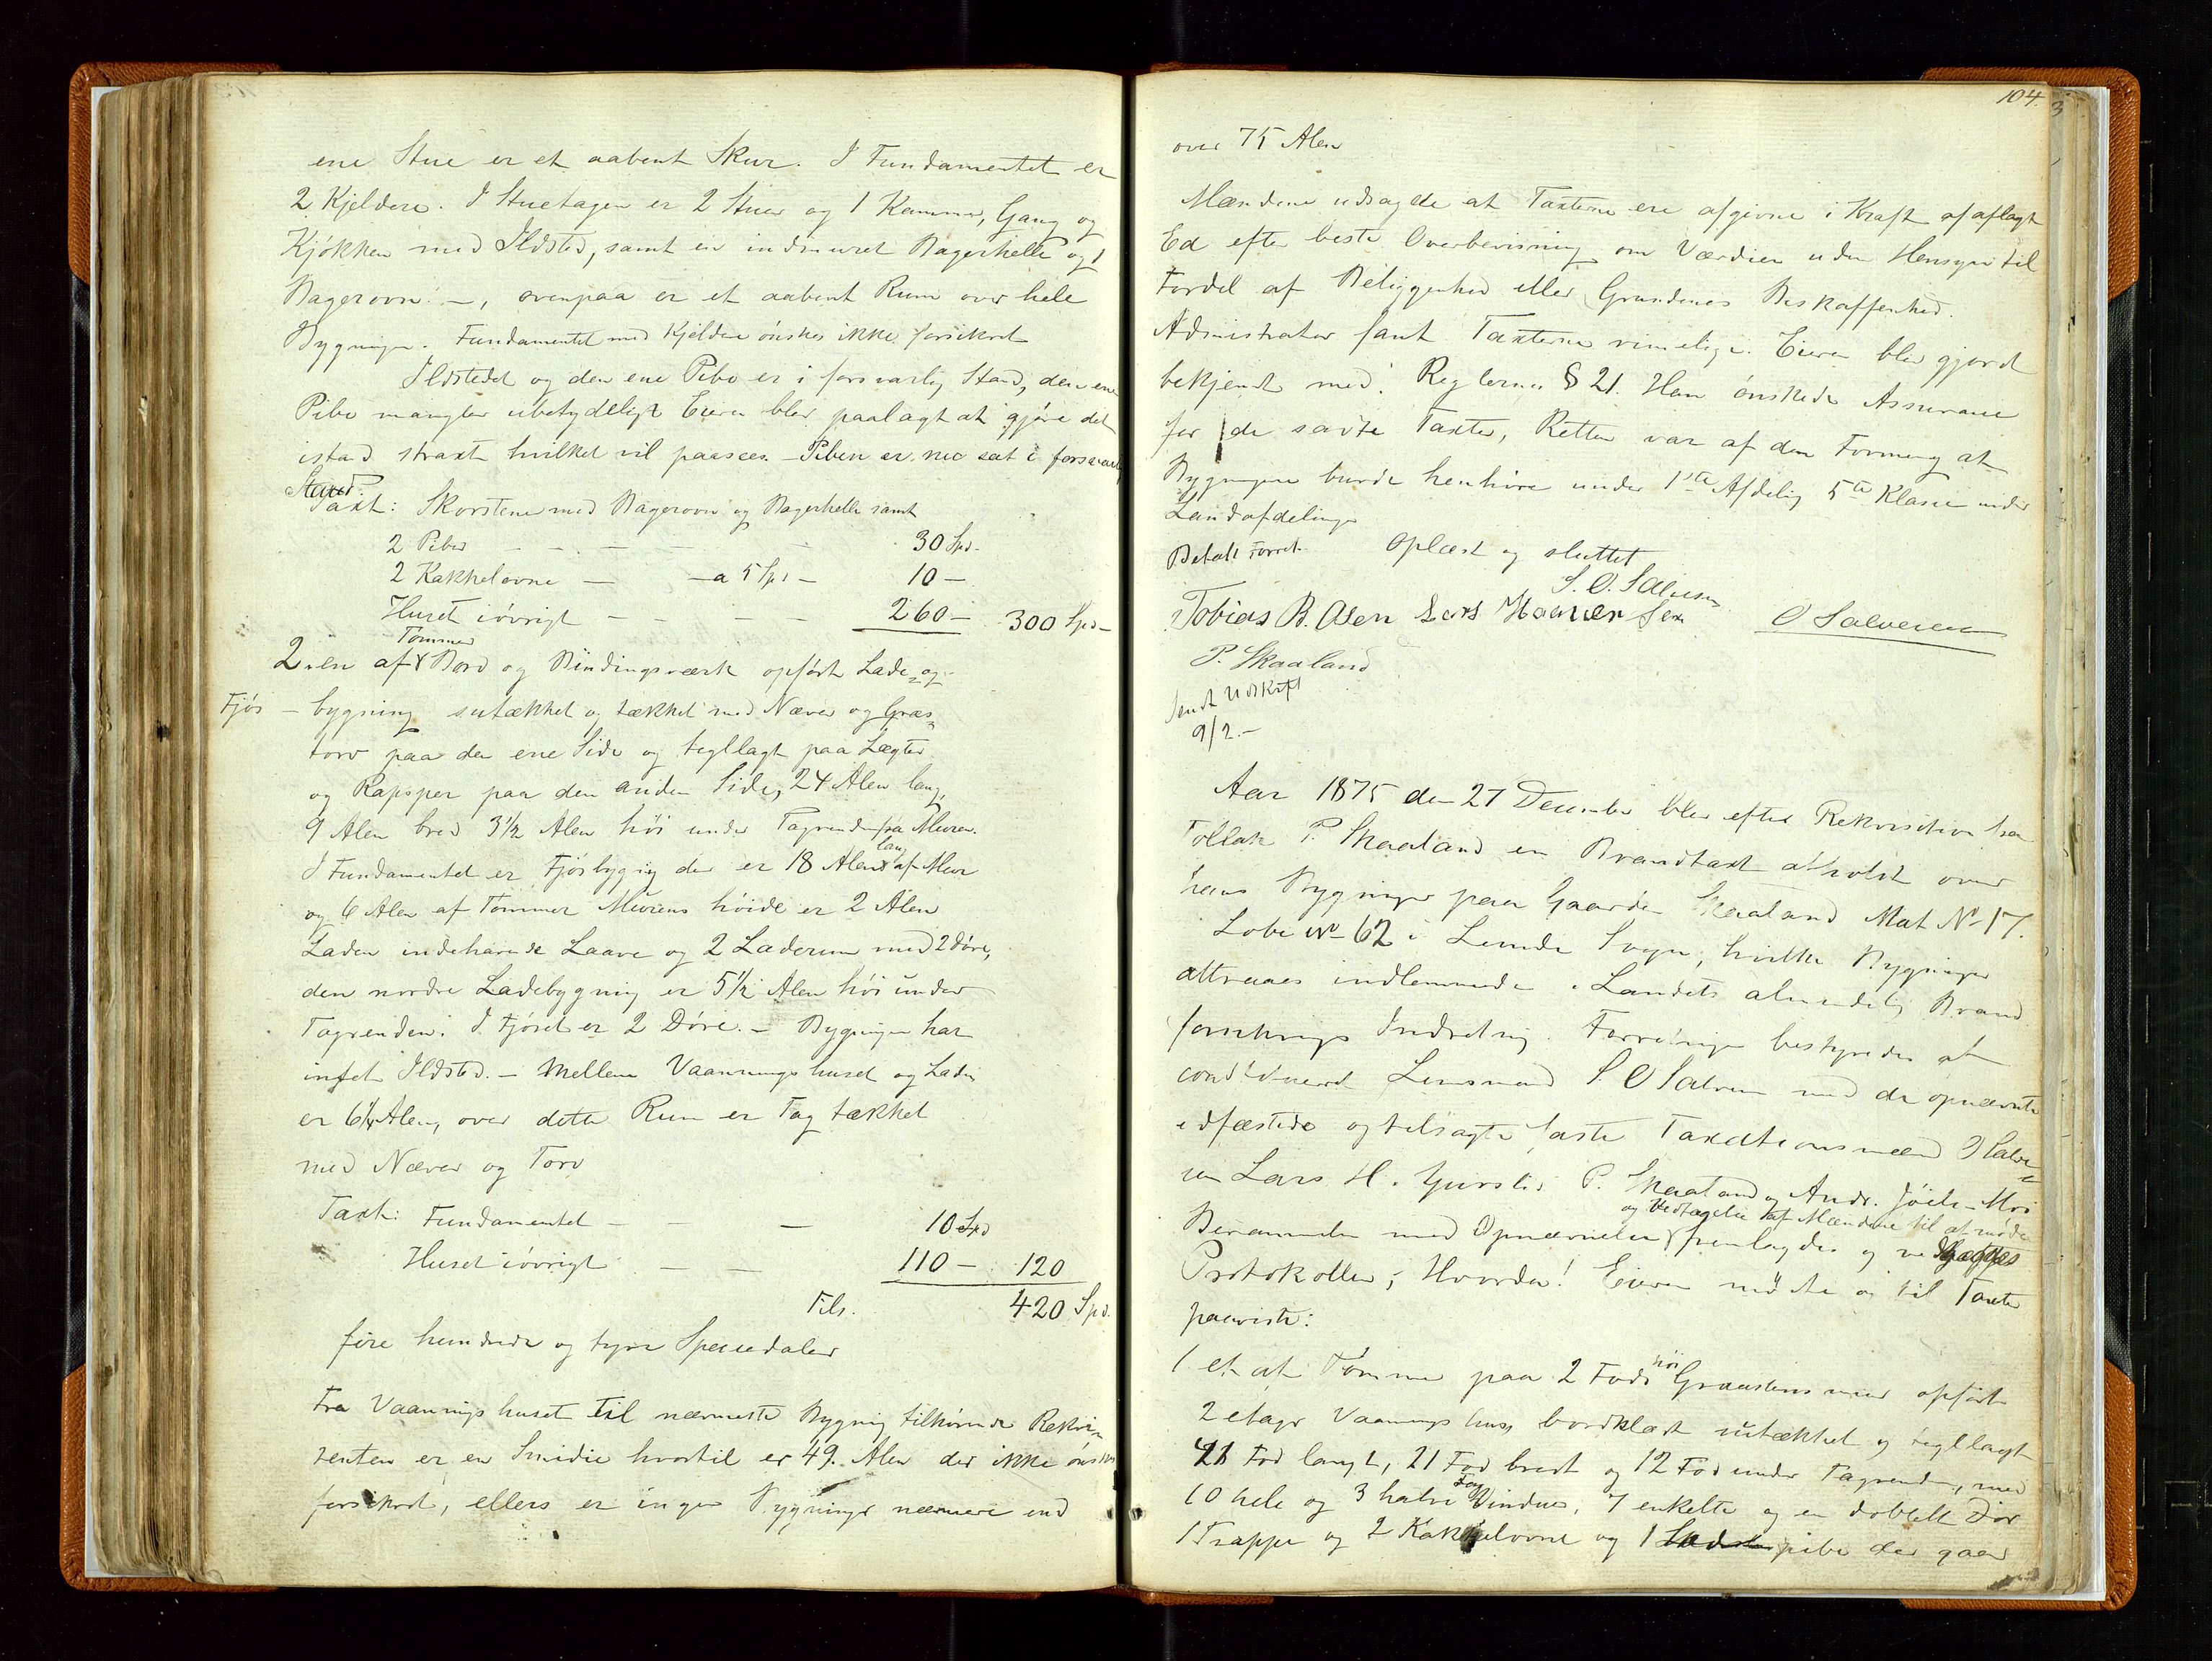 ene Stue er et aabent Skur. I Fundamentet er
2 Kjeldere. I Stuetagen er 2 Stuer og 1 Kammer, Gang og
Kjøkken med Ildsted, samt en indmuret Bagerhelle og 1
Bagerovn. –, ovenpaa er et aabent Rum over hele
Bygningen. Fundamentet med Kjeldere ønskes ikke forsikret
Ildstedet og den ene Pibe er i forsvarlig Stand, den ene
Pibe mangler ubetydeligt Eieren blev paalagt at gjøre det
istand straxt hvilket vil paasees. Piben er nu sat i forsvarlig
Stand.
Taxt: Skorstene med Bagerovn og Bagerhelle samt
2 Piber – – – 30 Spd.
2 Kakkelovne – – a 5 Spd – 10 –
Huset iøvrigt – – – – 260 – 300 Spd –
Tømmer
2. en af Bord og Bindingsværk opført Lade- og
Fjøs – bygning sutækket og tækket med Næver og Græs-
torv paa den ene Side og tegllagt paa Lægter
og Rapsper paa den anden Side, 24 Alen lang,
9 Alen bred 3½ Alen høi under Tagrenden fra Muren.
lang
I Fundamentet er Fjøsbygnig der er 18 Alen af Mur
og 6 Alen af Tømmer Murens høide er 2 Alen
Laden indehavende Laave og 2 Laderum med 2 Døre,
den nordre Ladebygning er 5½ Alen høi under
Tagrenden. I Fjøset er 2 Døre. – Bygningen har
intet Ildsted. – Mellem Vaaningshuset og Laden
er 6¼ Alen, over dette Rum er Tag tækket
med Næver og Torv
Taxt: Fundamentet – – – 10 Spd
Huset iøvrigt – – 110 – 120
Tils. 420 Spd.
fire hundrede og tyve Speciedaler
Fra Vaaningshuset til nærmeste Bygnig tilhørende Rekvi-
renten er en Smidie hvortil er 49. Alen der ikke ønskes
forsikret, ellers er ingen Bygninger nærmere end
104.
over 75 Alen
Mændene udsagde at Taxterne ere afgivne i Kraft af aflagt
Ed efter beste Overbevisning om Værdien uden Hensyn til
Fordel af Beliggenhed eller Grundenes Beskaffenhed.
Administrator fant Taxterne rimelige. Eieren blev gjort
bekjendt med Reglernes § 21. Han ønskede Assurance
for de satte Taxter, Retten var af den Formeng at
Bygningene burde henhøre under 1ste Afdelig 5te Klasse under
Landafdelingen
Betalt Forret. Oplæst og sluttet
S. O. Salvesen
Tobias B. Osen Lars Haaversen O Salvesen
P. Skaaland
Sendt Udskrift
9/2. –
Aar 1875 den 27 December blev efter Rekvisition fra
Tollak P. Skaaland en Brandtaxt afholdt over
hans Bygninger paa Gaarden Skaaland Mat No 17.
Løbe No 62 i Lunde Sogn, hvilke Bygninger
attraaes indlemmede i Landets almindelig Brand
forsikrings Indretnig. Forretningen bestyredes af
constitueret Lensmand S. O Salvesen med de opnævnte
edfæstede og tilsagte faste Taxationsmænd O Salve-
sen Lars H. P. Skaaland og Andr. Moi
og Vedtagelse af Mændene til at møde
Berammelsen med Opnævnelsen fremlagdes og
Protokollen; Hvorda! Eieren mødte og til Taxter
paaviste:
høi
1 et af Tømmer paa 2 Fods Graastensmur opført
2 etages Vaaningshus, bordklædt sutækket og tegllagt
41 Fod langt, 21 Fod bredt og 12 Fod under Tagrenden, med
Fag
10 hele og 3 halve Vinduer, 7 enkelte og en dobbelt Dør
1 Trappe og 2 Kakkelovne og 1 pibe der gaar